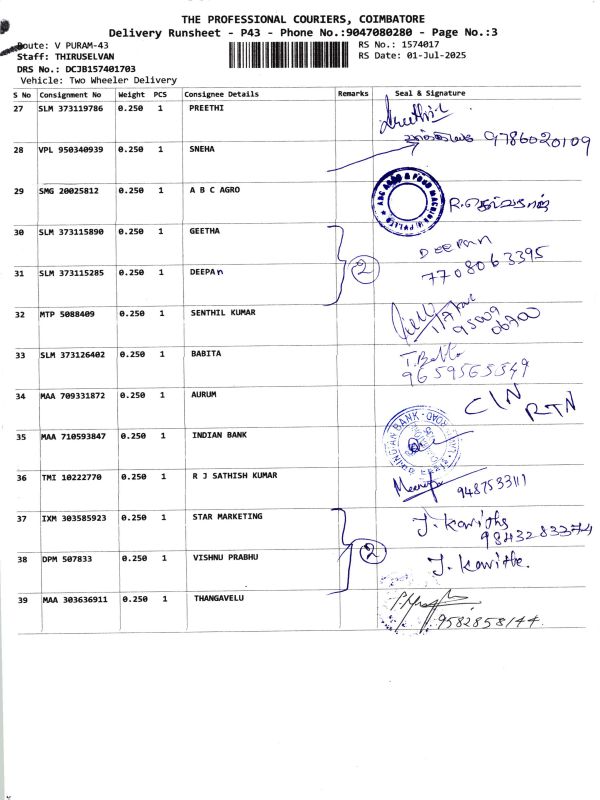 THE PROFESSIONAL COURIERS, COIMBATORE
Delivery Runsheet - P43 - Phone No.:9047080280 - Page No.:3
Route: V PURAM-43
RS No.: 1574017
Staff: THIRUSELVAN
RS Date: 01-Jul-2025
DRS No.: DCJB157401703
Vehicle: Two Wheeler Delivery
S No Consignment No Weight PCS Consignee Details Remarks Seal & Signature
27 SLM 373119786 0.250 1 PREETHI Preethi
9786020109
28 VPL 950340939 0.250 1 SNEHA
29 SMG 20025812 0.250 1 A B C AGRO ABC AGRO & FOOD
30 SLM 373115890 0.250 1 GEETHA DEEPAN
2
7708063395
31 SLM 373115285 0.250 1 DEEPAN
32 MTP 5088409 0.250 1 SENTHIL KUMAR
33 SLM 373126402 0.250 1 BABITA
9659565549
34 MAA 709331872 0.250 1 AURUM
RTN
35 MAA 710593847 0.250 1 INDIAN BANK INDIAN BANK
36 TMI 10222770 0.250 1 R J SATHISH KUMAR
9487533111
37 IXM 303585923 0.250 1 STAR MARKETING J. Kavitha
9843283374
2
38 DPM 507833 0.250 1 VISHNU PRABHU J. Kavitha.
39 MAA 303636911 0.250 1 THANGAVELU
9582858144.